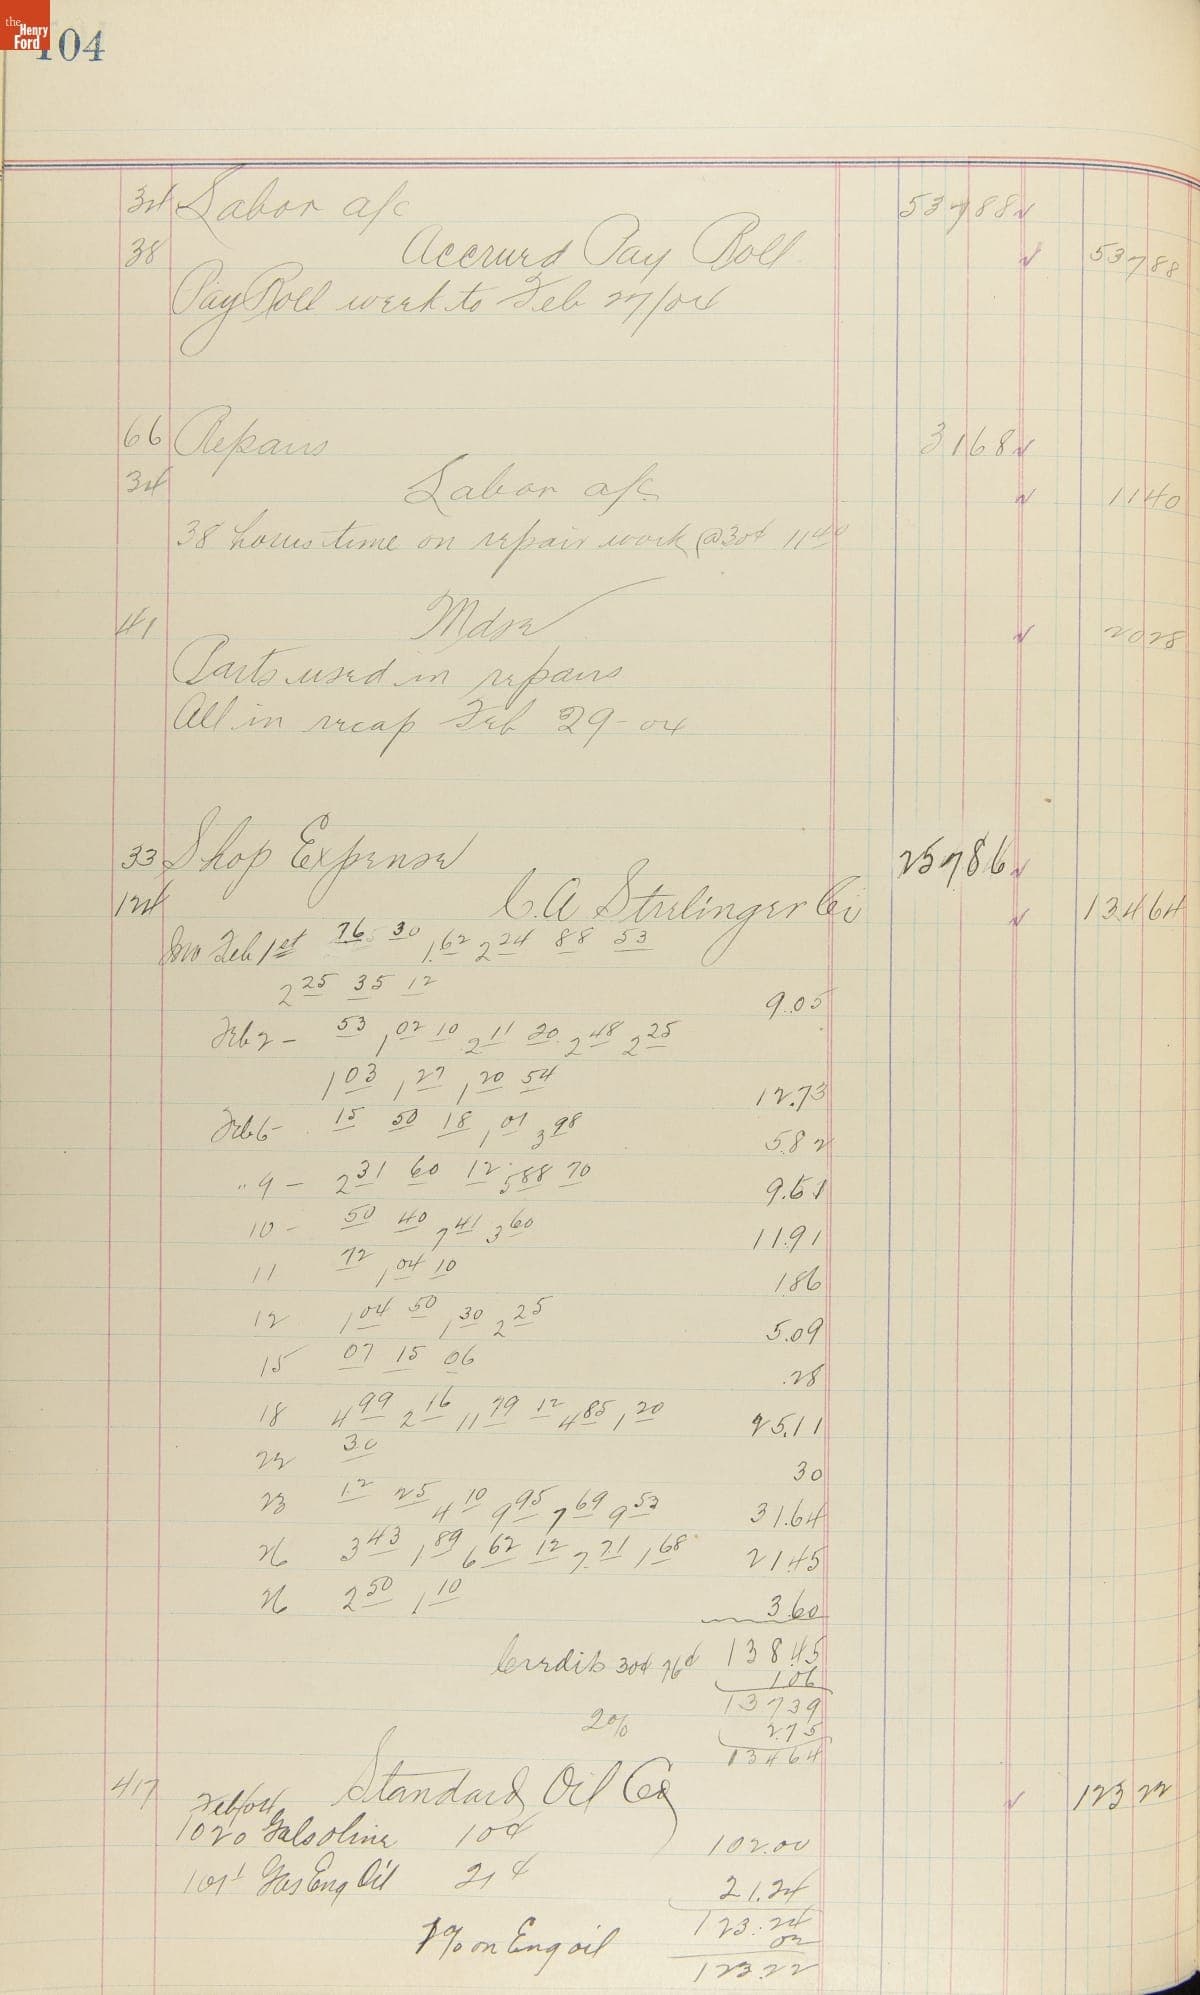 the Henry Ford
104
34 Labor a/c 537 88
38 Accrued Pay Roll 537 88
Pay Roll week to Feb 27/04
66 Repairs 31 68
34 Labor a/c 11 40
38 hours time on repair work @30¢ 11 40
41 Mdse 20 28
Parts used in repairs
All in recap Feb 29-04
33 Shop Expense 257 86
124 C.A Strelinger Co 134 64
Inv Feb 1st 76 30 1,62 2 24 88 53
2 25 35 12 9.05
Feb 2- 53 1,02 10 2 11 20 2 48 2 25
1 03 1,27 1,20 54 12.73
Feb 6- 15 50 18 1,01 3 98 5.82
" 9 - 2 31 60 12 5 88 70 9.61
10 - 50 40 7 41 3 60 11.91
11 72 1,04 10 1.86
12 1,04 50 1,30 2 25 5.09
15 07 15 06 .28
18 4 99 2 16 11 79 12 4 85 1,20 25.11
22 30 30
23 12 25 4 10 9 95 7 69 9 53 31.64
26 3 43 1,89 6 62 12 7.71 1,68 21.45
26 2 50 1,10 3.60
138.45
Credits 30¢ 76¢ 1.06
137 39
2% 2.75
134 64
417 Standard Oil Co 123 22
Feb/04
1020 Galsoline 10¢ 102.00
Gas Eng Oil 21¢ 21.24
123.24
1% on Eng oil 02
123.22